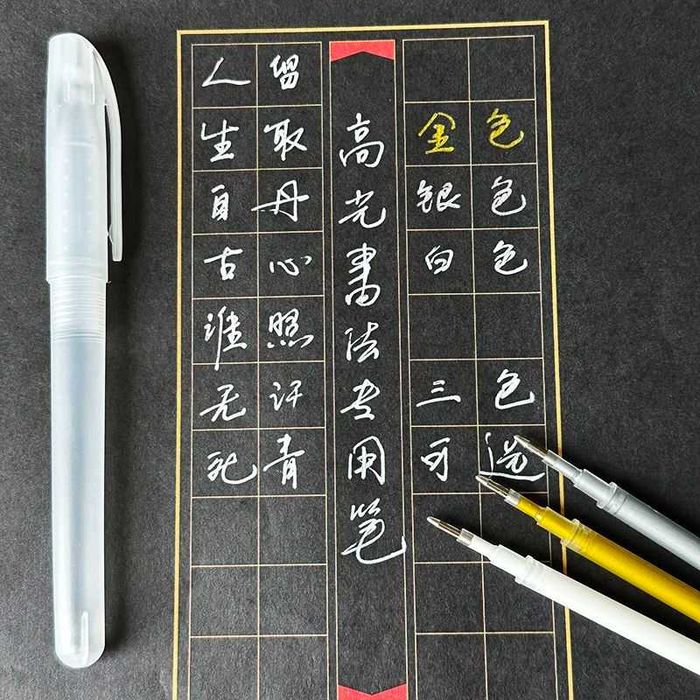 人生自古谁无死
留取丹心照汗青
高光書法专用笔
金色
银色
白色
三色
可选